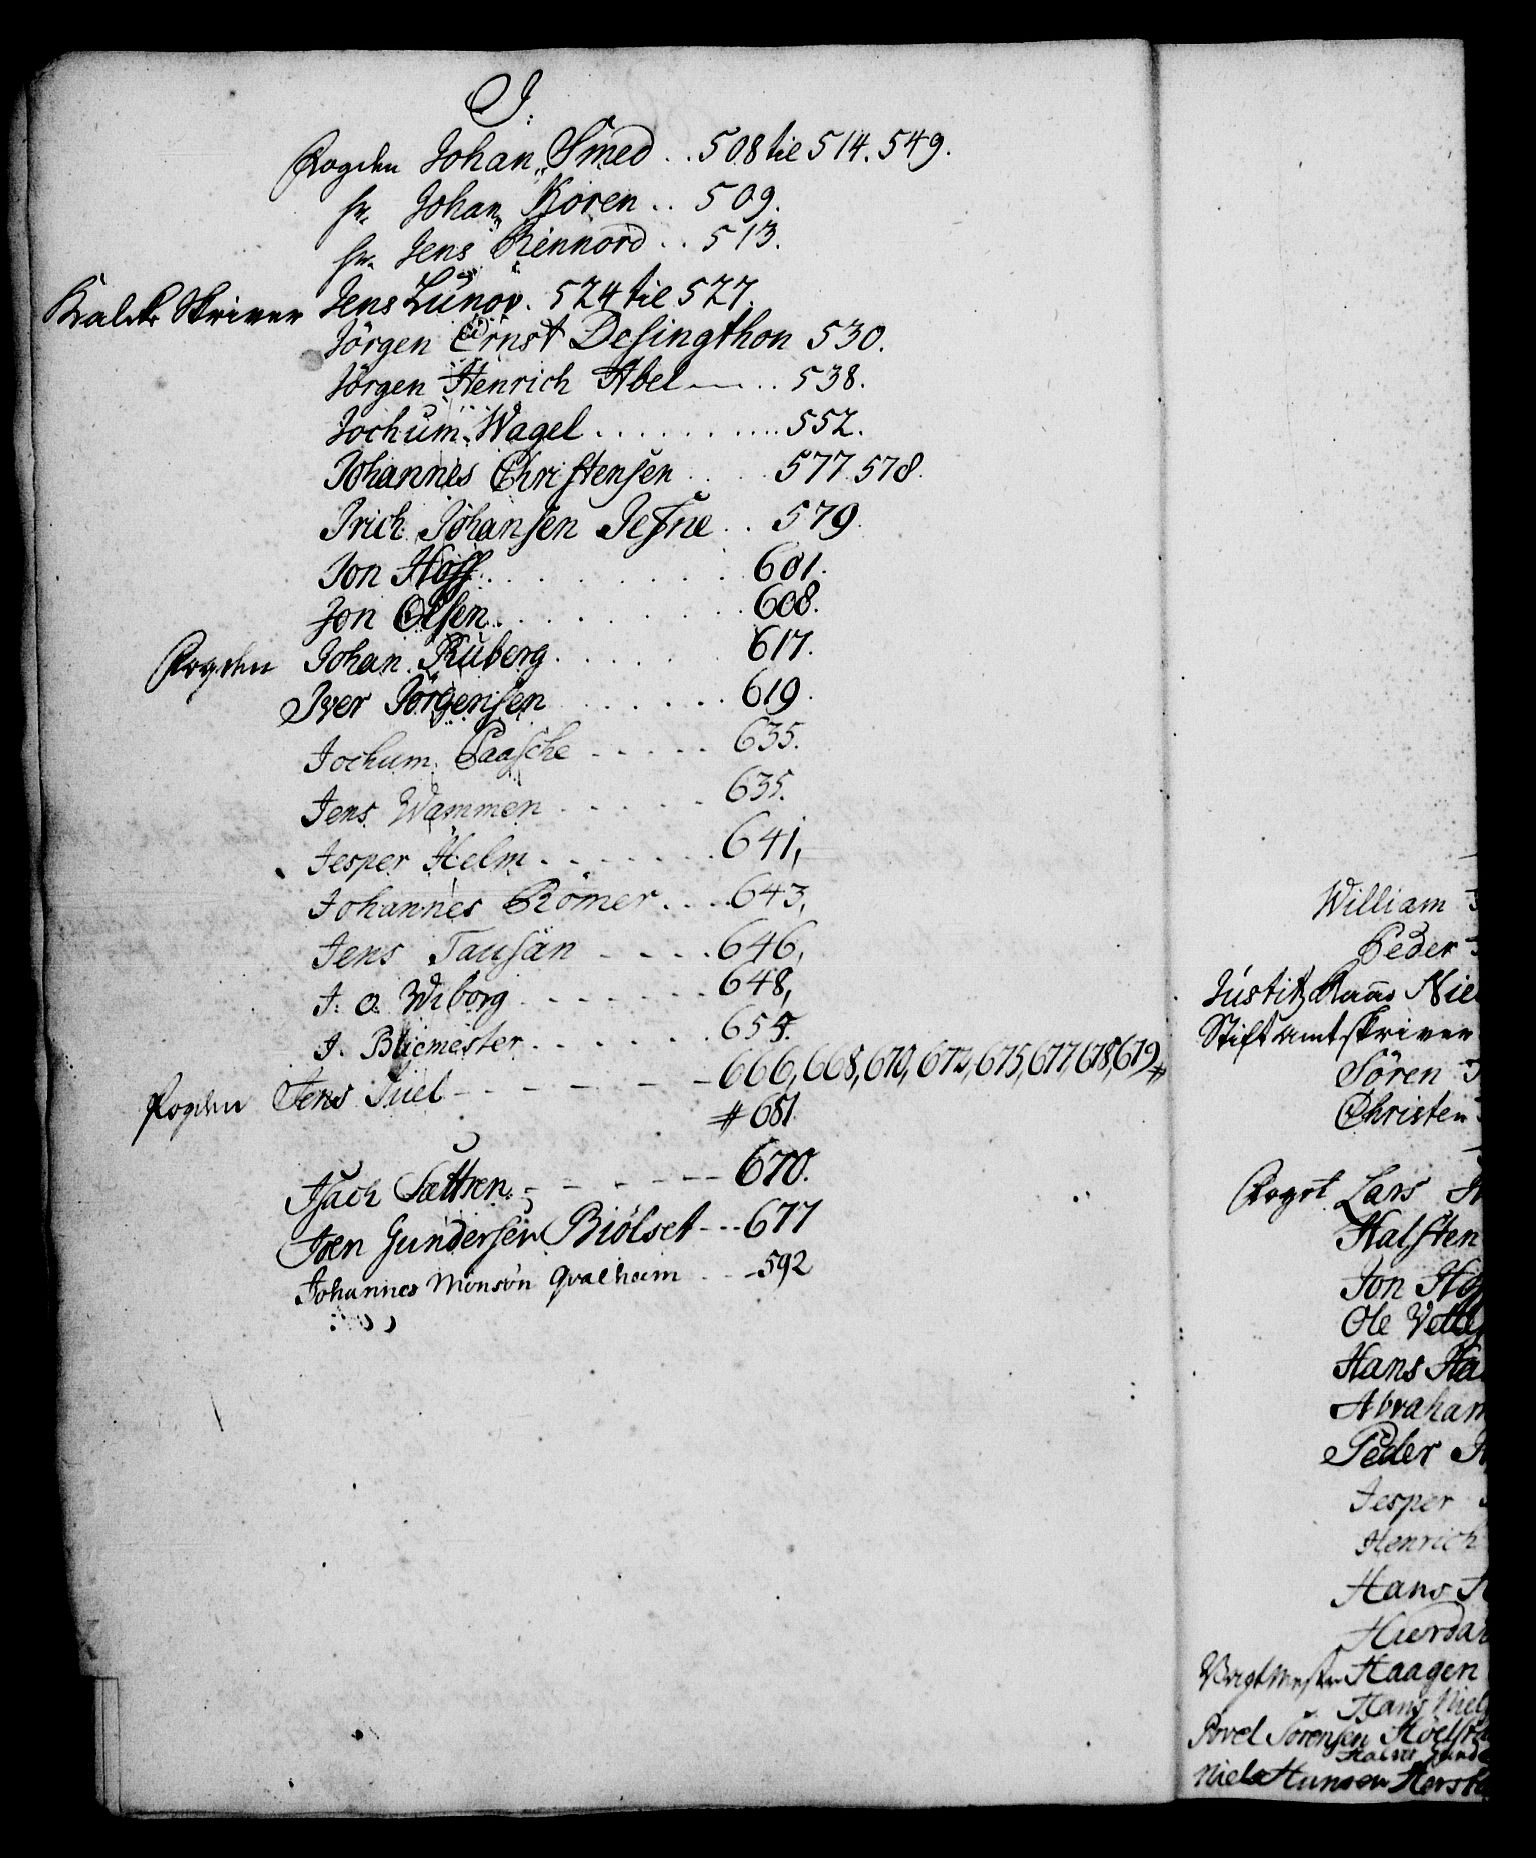 J:
Fogden Johan Smed .. 508 til 514. 549.
hr. Johan Koren .. 509.
hr. Jens Rennord .. 513.
Skriver Jens Lunov. 524 til 527.
Jörgen Ernst Desingthon 530.
Jörgen Henrich Abel .. 538.
Jochum Wagel .......... 552.
Johannes Christensen .... 577. 578.
Irich Johansen Jesne .. 579.
Jon Hoff .......... 601.
Jon Olsen .......... 608.
Fogden Johan Ruberg ...... 617.
Iver Jörgensen ....... 619.
Jochum Paasche ----- 635.
Jens Wammen ..... 635.
Jesper Helm ....... 641,
Johannes Römer .... 643,
Jens Tausan - . . . 646,
J. O. Wiborg ....... 648,
J. Blijmester .......
Fogden Jens Juel - - - - - - 666, 668, 670, 672, 675, 677, 678, 679 #
# 681.
Isach Sættren - - - - - - 670.
Joen Gundersen Biölset --- 677
Johannes Monsön Qvalheim . . - 592
William
Peder
Justitz Raad Nie
Stiftamtskriver
Sören
Christen
Fogst Lars
Halsten
Jon Ho
Ole
Hans Ha
Abraham
Peder
Jesper
Henrich
Hans
Haagen
Hans Niels
Povel Sörensen
Halvor Gunde
Niels Hansen